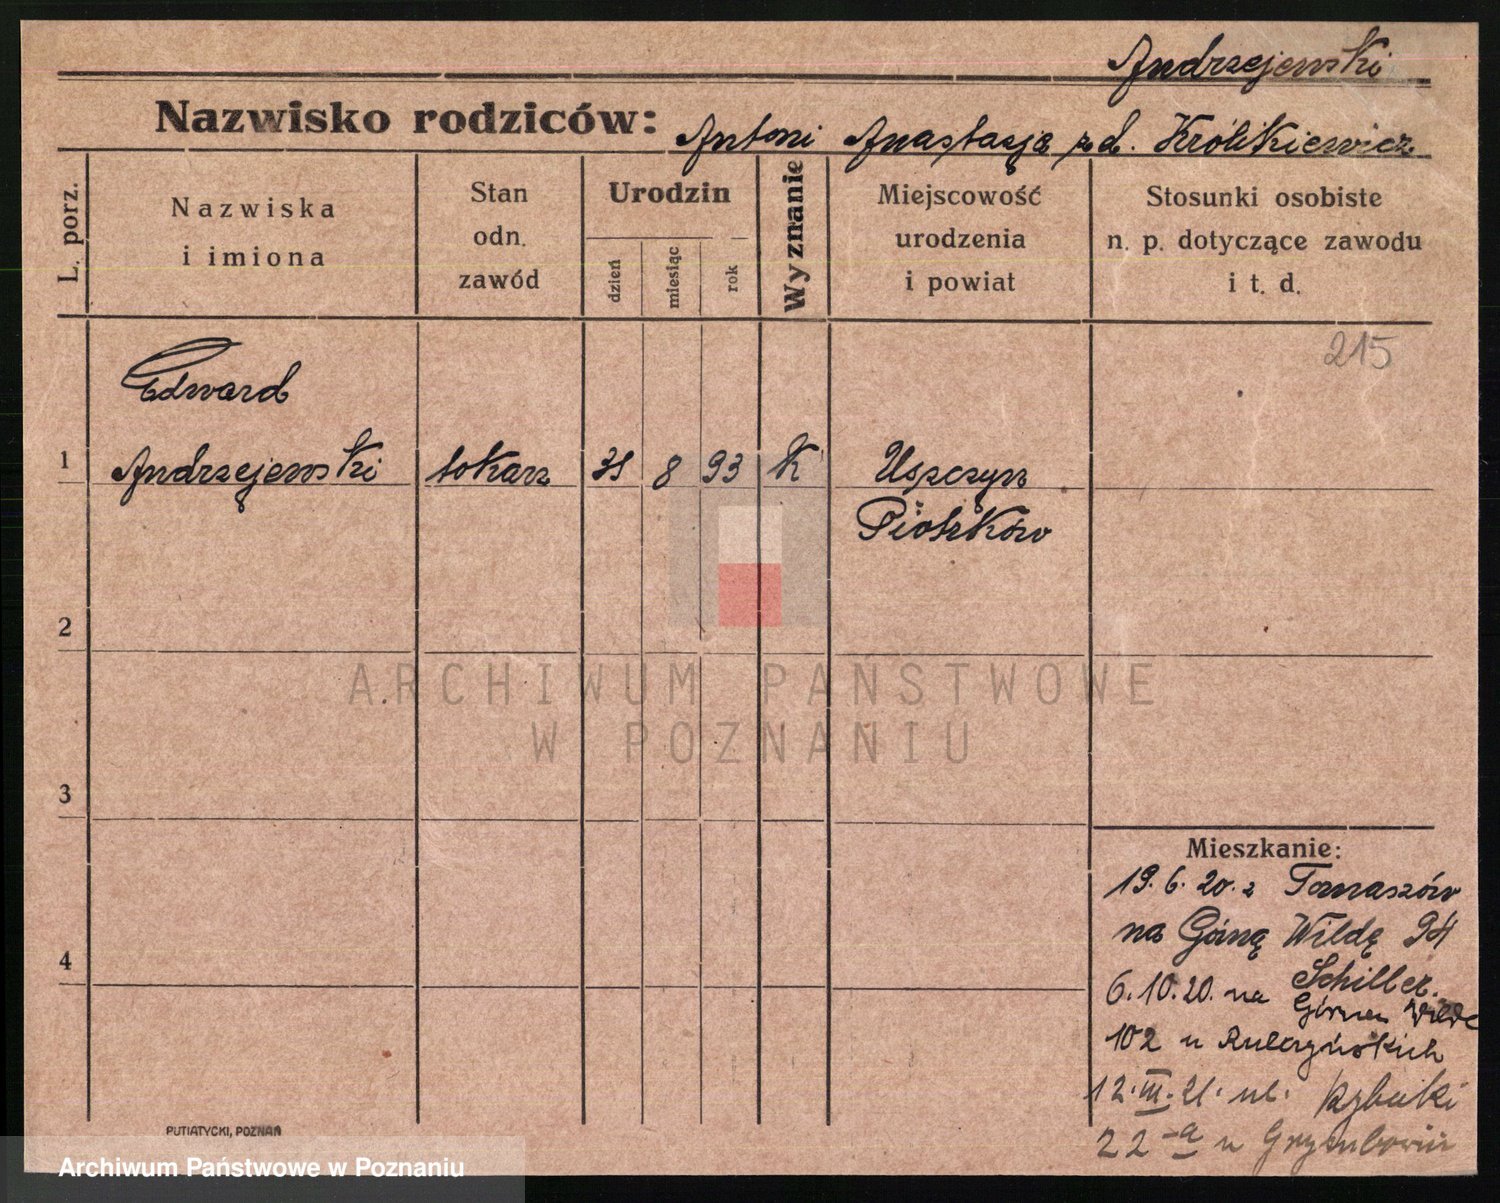 Andrzejewski
Nazwisko rodziców: Antoni Anastazja zd. Królikiewicz
L. porz.
Nazwiska
i imiona
Stan
odn.
zawód
Urodzin
dzień
miesiąc
rok
Wyznanie
Miejscowość
urodzenia
i powiat
Stosunki osobiste
n. p. dotyczące zawodu
i t. d.
215
Edward
1 Andrzejewski tokarz 31 8 93 K Uszczyn
Piotrków
2
ARCHIWUM PAŃSTWOWE
W POZNANIU
3
Mieszkanie:
19.6.20. z Tomaszów
na Górną Wildę 94
Schiller.
6.10.20. na Górna Wilda
102 u
4
12.III.21. ul. Rybaki
22-a u
PUTIATYCKI, POZNAŃ
Archiwum Państwowe w Poznaniu